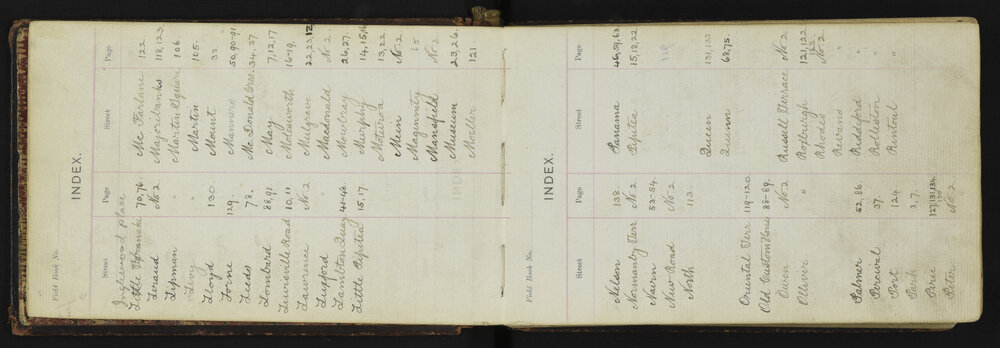 Field Book No.
INDEX.
Street Page Street Page
Inglewood place
Little Taranaki 70,76. Mc Farlane 122
Feraud No 2 Majoribanks 118,123.
Lipman " Martin Square 106.
Levy " Martin 105.
Lloyd 130 Mount 33
Lorne 129 Manners 50,90-91
Leeds 78. McDonald Cres. 34,37
Lombard 88,91 May 7,12,17
Lewisville Road 10,11. Molesworth 16-19,
Lawrence No 2 Mulgrave 22,23,12
Lipford " Macdonald No 2
Lambton Quay 41-48. Mowbray 26,27.
Little Pipitea 15,17. Murphy 14,15,16
Moturoa 13,22
Mein No 2
Maginnity 65
Mansfield No 2
Museum 23,26.
Moeller 121
Field Book No.
INDEX.
Street Page Street Page
Nelson 138 Panama 46,59,63
Normanby Terr No 2 Pipitea 15,18,22
Nairn 53-54.
New Road No 2
North 113. Queen 131,133
Quinon 68,75.
Oriental Terr 119-120.
Old Custom House 88-89. Russell Terrace No 2
Owen No 2 Roxburgh 121,122
123
Olliver " Rhodes No 2
Revans "
Palmer 52,86. Riddiford "
Percival 37 Rolleston "
Port 124 Rintoul "
Park 3,7.
Pirie 127,131,134.
130
Peter No 2